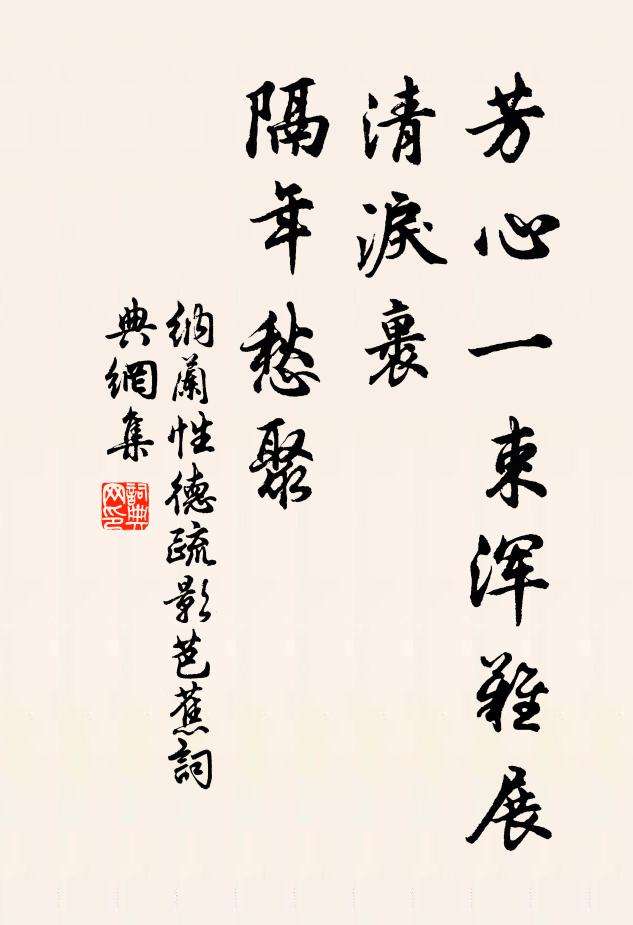 芳心一束浑難展
清淚裏
隔年愁聚
納蘭性德疏影芭蕉詞
典網集
詞典网印